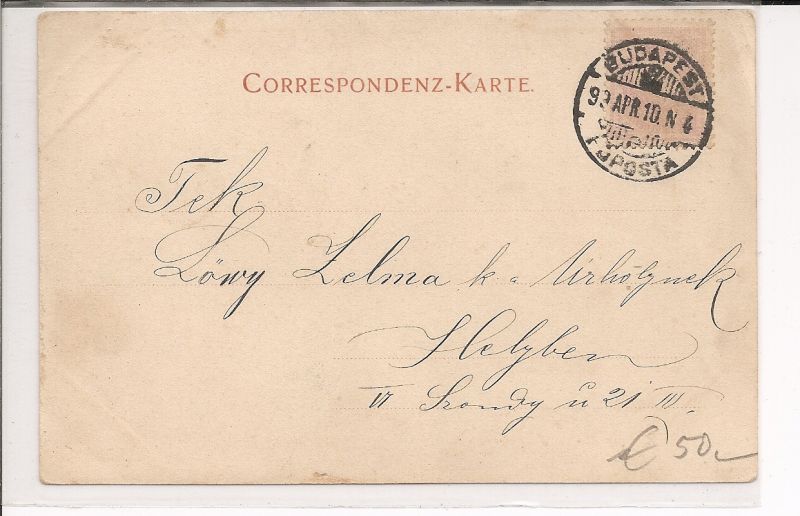 CORRESPONDENZ-KARTE.
BUDAPEST
99 APR. 10. N 4
FŐPOSTA
Tek.
Löwy Zelma k. a. Úrhölgynek
Helyben
VI Szondy u 21 III.
€ 50,-